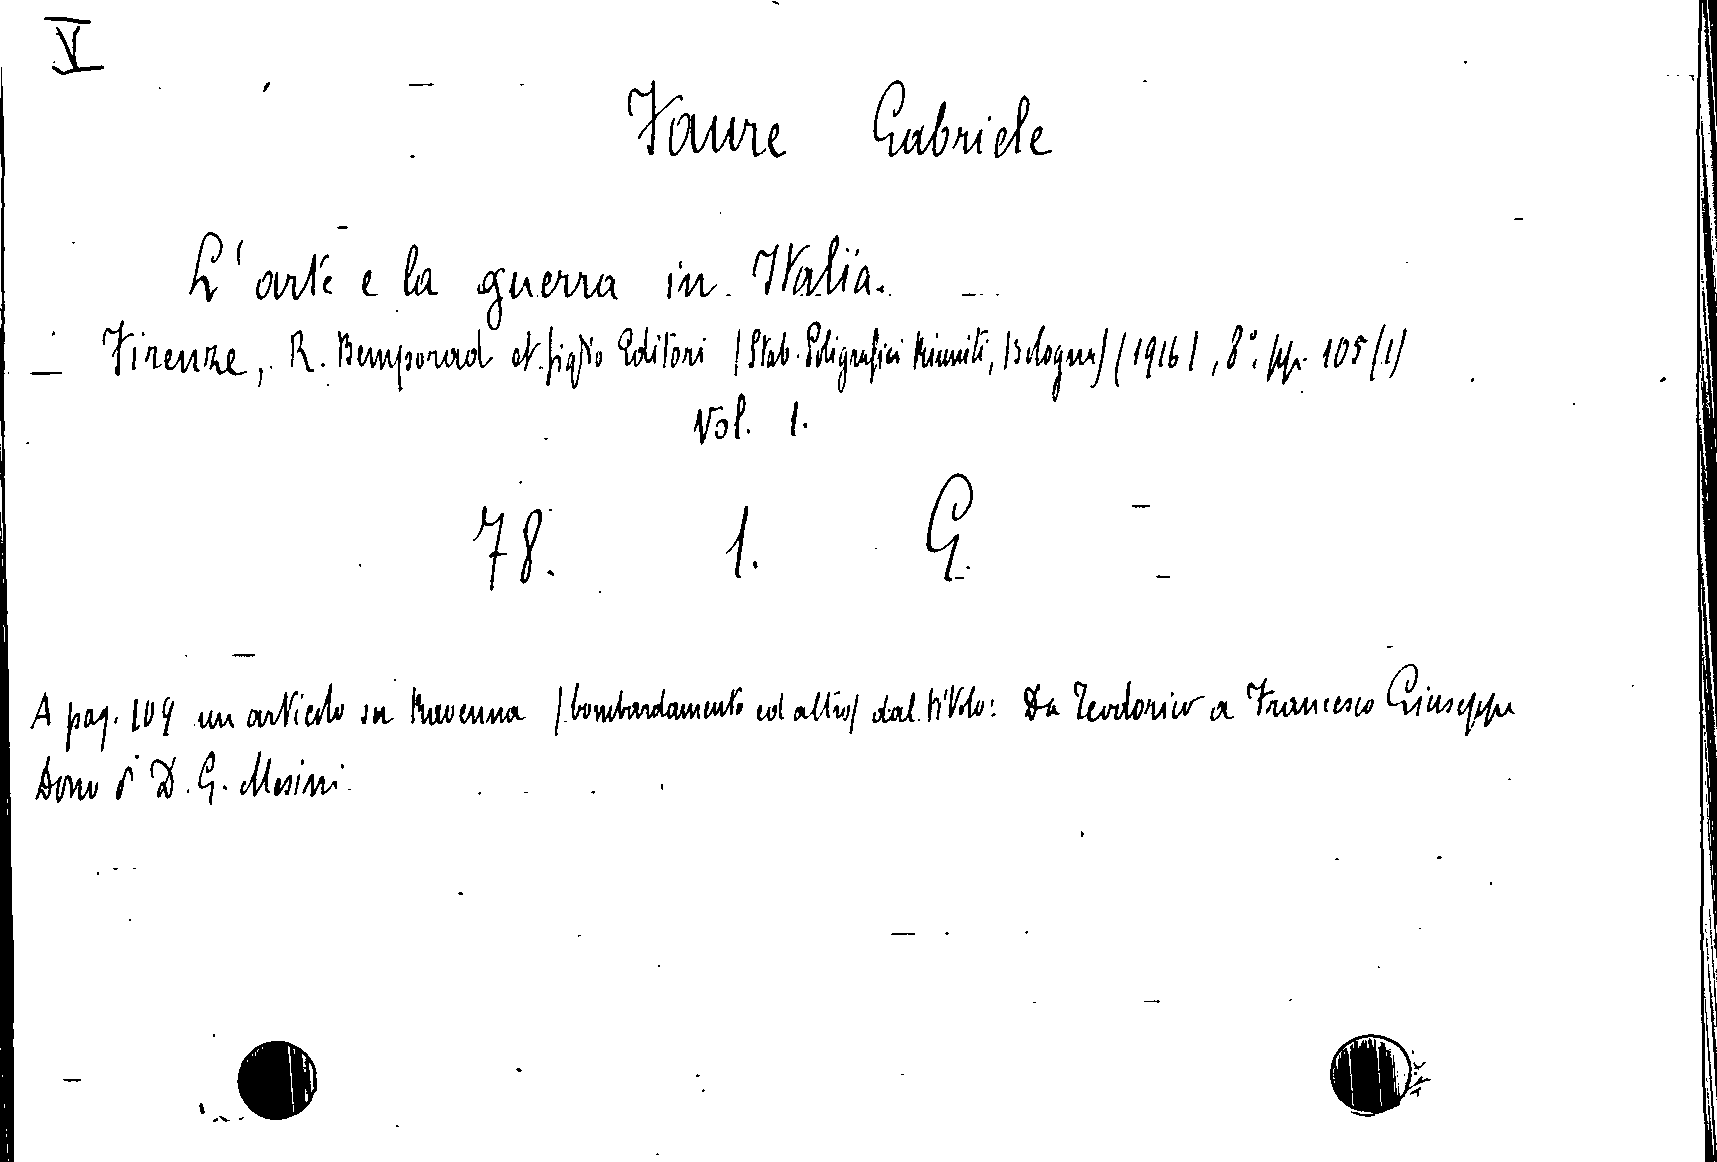 V
Faure Gabriele
L'arte e la guerra in Italia.
Firenze, R. Bemporad et figlio Editori (Stab. Poligrafici Riuniti, Bologna) (1916), 8°. pp. 105 (1)
Vol. 1.
78. 1. G.
A pag. 109 un articolo su Ravenna (bombardamento ed altro) dal titolo: Da Teodorico a Francesco Giuseppe
Dono di D. G. Mesini